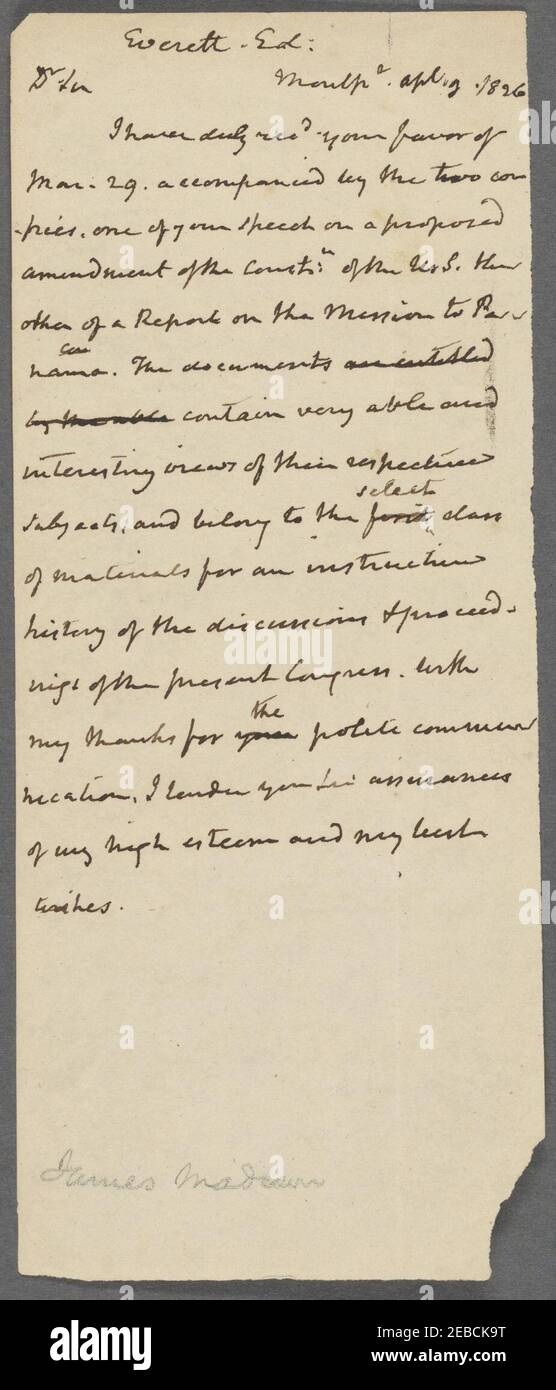 Everett. Ed:
Dr Sir Montpr. apl 9. 1826
I have duly recd your favor of
Mar. 29. accompanied by the two co
-pies, one of your Speech on a proposed
amendment of the Constn of the U.S. the
other of a Report on the Mission to Pa-
nama. The documents are entitled
by the able contain very able and
interesting views of their respective
subjects, and belong to the first select class
of materials for an instructive
history of the discussions & proceed-
ings of the present Congress. With
my thanks for your the polite commu
nication, I tender you Sir assurances
of my high esteem and my best
wishes.
James Madison
alamy
Image ID: 2EBCK9T
www.alamy.com